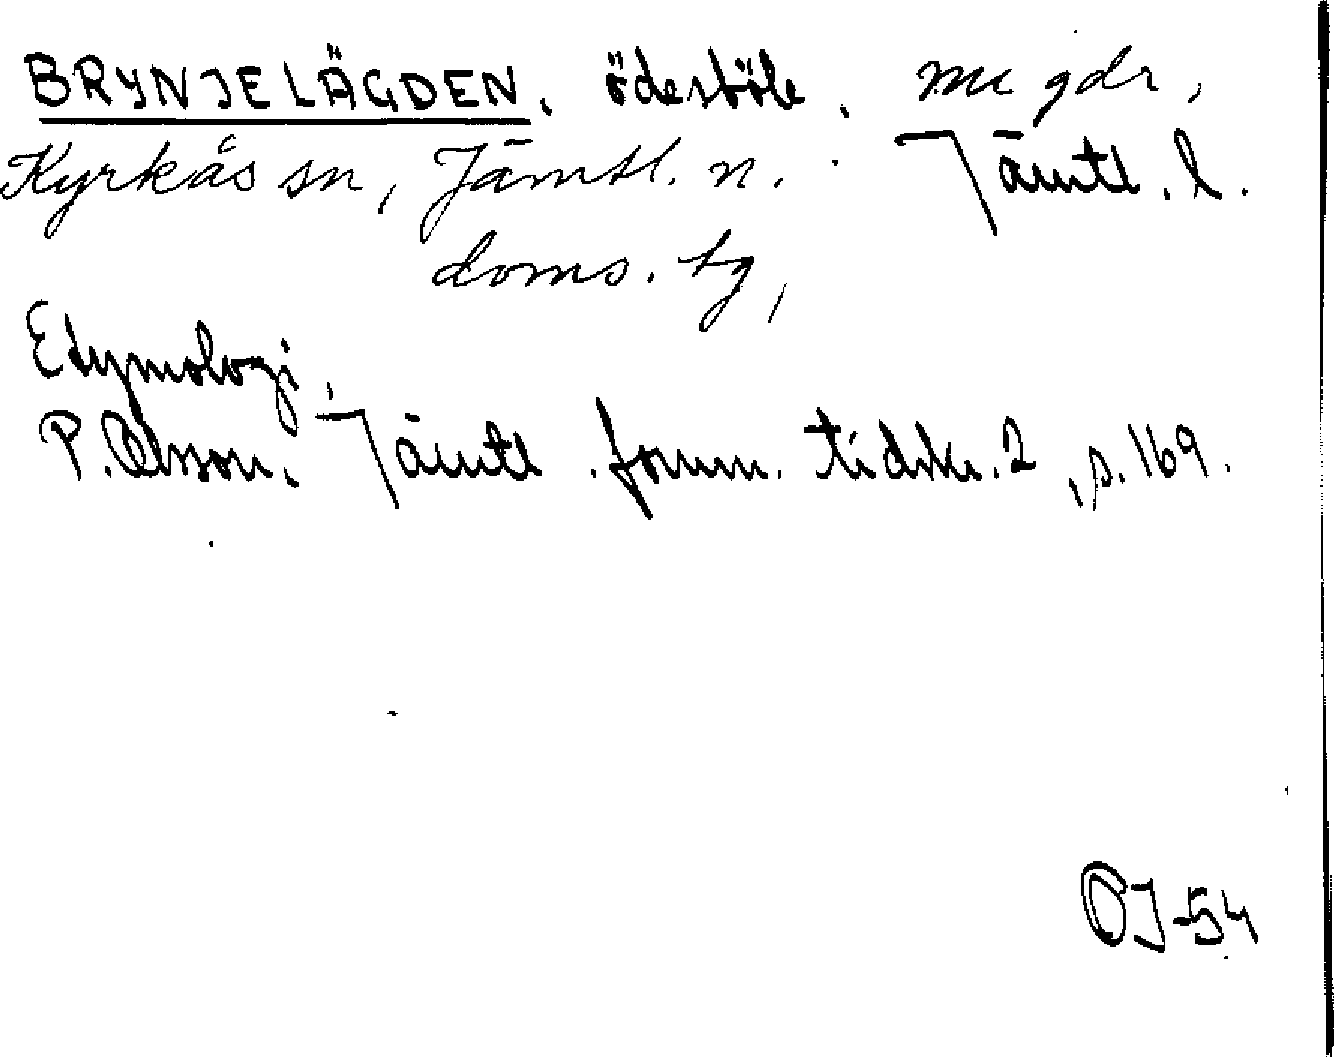 BRYNJELÄGDEN. ödesböle. nu gdr,
Kyrkås sn, Jämtl. n. Jämtl. l.
doms. tg,
Etymologi,
P. Olsson. Jämtl. fornm. tidskr. 2, s. 169.
OJ-54